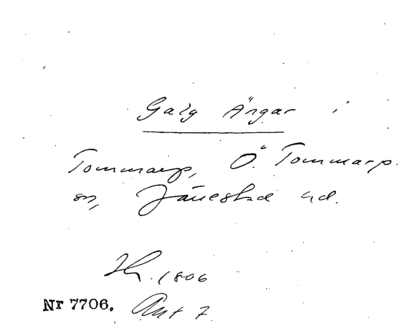 Galg Ängar i
Tommarp, Ö. Tommarp
sn, Järrestad hd.
Hr. 1806
Nr 7706. Ant 7